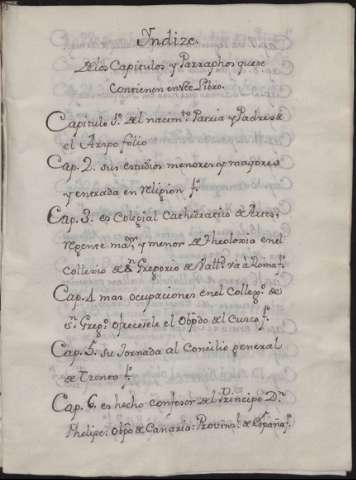 Yndize.
De los Capitulos y Parraphos que se
Contienen en este Libro.
Capitulo 1º. del nacimto. Patria y Padres de
el Arzpo folio
Cap. 2. sus estudios menores y mayores
y entrada en Religion fº.
Cap. 3. es Colegial Cathedratico de Artes,
Regente maor. y menor de Theologia en el
Collegio de Sn. Gregorio de Valld. va à Roma fº.
Cap. 4 mas ocupaciones en el Collegº. de
Sn. Gregº. ofrecesele el Obpdo de el Cuzco fº.
Cap. 5. su Jornada al Concilio general
de Trento fº.
Cap. 6. es hecho confesor del Principe Dn.
Phelipe: Obpo de Canaria: Provinal. de España fº.